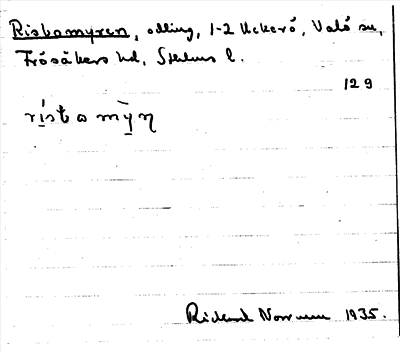 Ristamyren, odling, 1-2 Uckerö, Valö sn,
Frösåkers hd, Sthlms l.
129
rístamỳn
Rickard Norrman 1935.